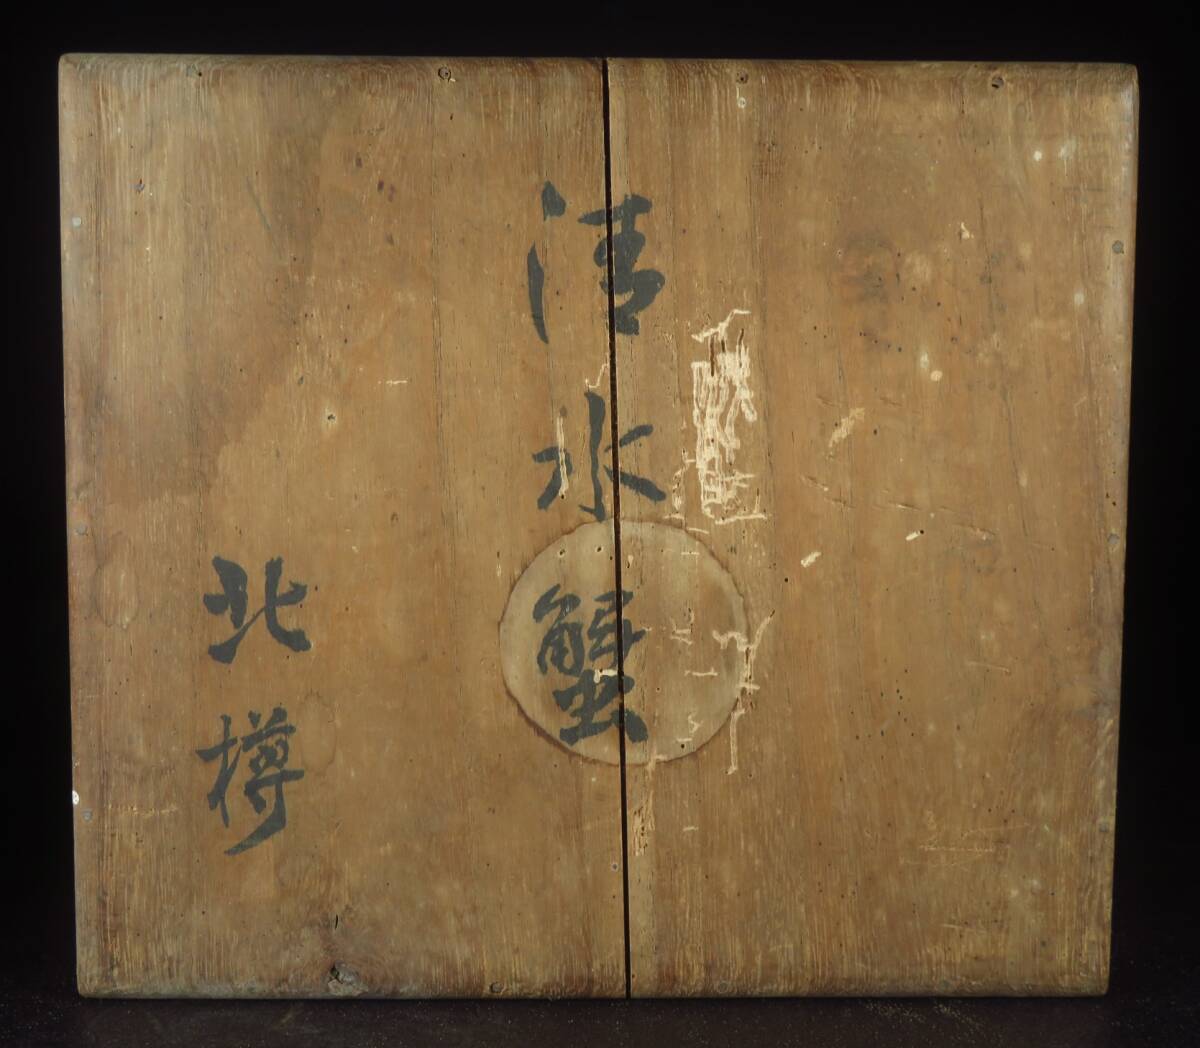 清水蟹
北樽